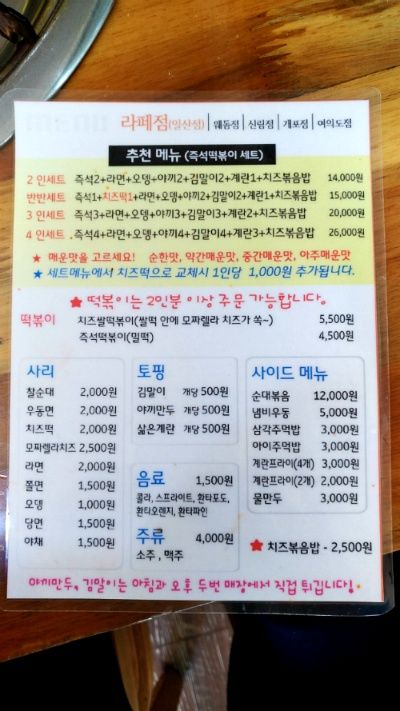 라페점(일산점) | 웨돔점 | 신림점 | 개포점 | 여의도점
추천 메뉴 (즉석떡볶이 세트)
2 인세트 즉석2+라면+오뎅+야끼2+김말이2+계란1+치즈볶음밥 14,000원
반반세트 즉석1+치즈떡1+라면+오뎅+야끼2+김말이2+계란1+치즈볶음밥 15,000원
3 인세트 즉석3+라면+오뎅+야끼3+김말이3+계란2+치즈볶음밥 20,000원
4 인세트 즉석4+라면+오뎅+야끼4+김말이4+계란3+치즈볶음밥 26,000원
★ 매운맛을 고르세요! 순한맛, 약간매운맛, 중간매운맛, 아주매운맛
★ 세트메뉴에서 치즈떡으로 교체시 1인당 1,000원 추가됩니다.
★ 떡볶이는 2인분 이상 주문 가능합니다.
떡볶이 치즈쌀떡볶이(쌀떡 안에 모짜렐라 치즈가 쏙~) 5,500원
즉석떡볶이(밀떡) 4,500원
사리
찰순대 2,000원
우동면 2,000원
치즈떡 2,000원
모짜렐라치즈 2,500원
라면 2,000원
쫄면 1,500원
오뎅 1,000원
당면 1,500원
야채 1,500원
토핑
김말이 개당 500원
야끼만두 개당 500원
삶은계란 개당 500원
음료 1,500원
콜라, 스프라이트, 환타포도,
환타오렌지, 환타파인
주류 4,000원
소주 , 맥주
사이드 메뉴
순대볶음 12,000원
냄비우동 5,000원
삼각주먹밥 3,000원
아이주먹밥 3,000원
계란프라이(4개) 3,000원
계란프라이(2개) 2,000원
물만두 3,000원
★ 치즈볶음밥 - 2,500원
야끼만두, 김말이는 아침과 오후 두번 매장에서 직접 튀깁니다!